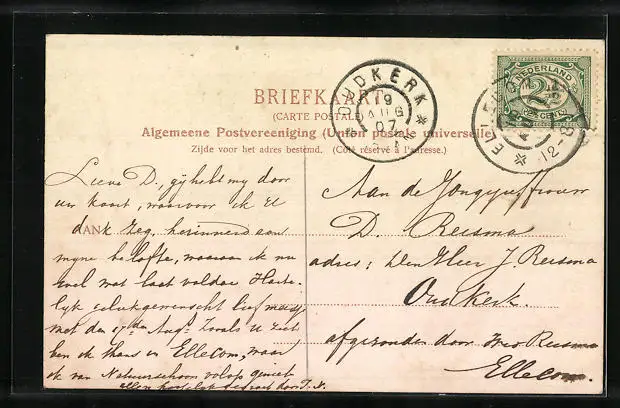 BRIEFKAART
(CARTE POSTALE)
Algemeene Postvereeniging (Union postale universelle)
Zijde voor het adres bestemd. (Côté réservé à l'adresse.)
OUDKERK
9
AUG
NEDERLAND
2½
CENT
12-
Lieve D., gij hebt my door
uw kaart, waarvoor ik U
dank zeg, herinnerd aan
myne belofte, waaraan ik nu
wel wat laat voldoe. Harte-
lyk gelukgewenscht lief
met den 17den Aug. Zooals U ziet
ben ik thans in Ellecom, waar
ik van Natuurschoon volop geniet
allen hartelyk gegroet door T. N.
Aan de Jongejuffrouw
D. Reisma
adres: den Heer J. Reisma
Oudkerk.
afgezonden door Reisma
Ellecom.